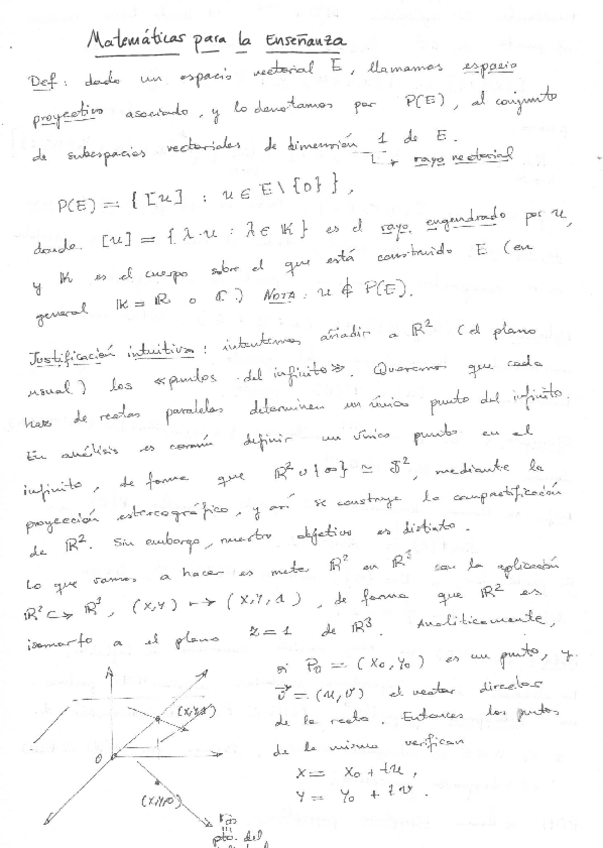 Matemáticas para la Enseñanza
Def: dado un espacio vectorial E, llamamos espacio
proyectivo asociado, y lo denotamos por P(E), al conjunto
de subespacios vectoriales de dimensión 1 de E.
↳ rayo vectorial
P(E) = { [u] : u ∈ E \ {0} },
donde [u] = { λ·u : λ ∈ K } es el rayo engendrado por u,
y K es el cuerpo sobre el que está construido E (en
general K = R o C.) NOTA: u ∉ P(E).
Justificación intuitiva: intentemos añadir a R² (el plano
usual) los «puntos del infinito». Queremos que cada
haz de rectas paralelas determinen un único punto del infinito.
En análisis es común definir un único punto en el
infinito, de forma que R² ∪ {∞} ≃ S², mediante la
proyección estereográfica, y así se construye la compactificación
de R². Sin embargo, nuestro objetivo es distinto.
Lo que vamos a hacer es meter R² en R³ con la aplicación
R² ↪ R³, (x,y) ↦ (x,y,1), de forma que R² es
isomorfo a el plano z=1 de R³. Analíticamente,
si P₀ = (x₀,y₀) es un punto, y
v⃗ = (u,v) el vector director
de la recta. Entonces los puntos
de la misma verifican
x = x₀ + tu,
y = y₀ + tv.
(x,y,1)
0
(x,y,0)
pto. del